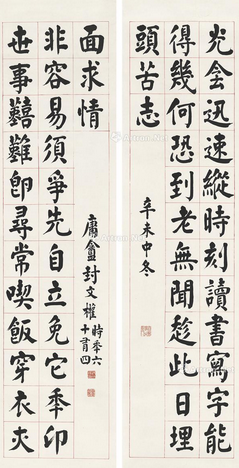 光陰迅速縱時刻讀書寫字能
得幾何恐到老無聞趁此日埋
頭苦志
辛未中冬
世事艱難即尋常喫飯穿衣夾
非容易須爭先自立免它年卬
面求情
庸盦封文權
時年六
十有四